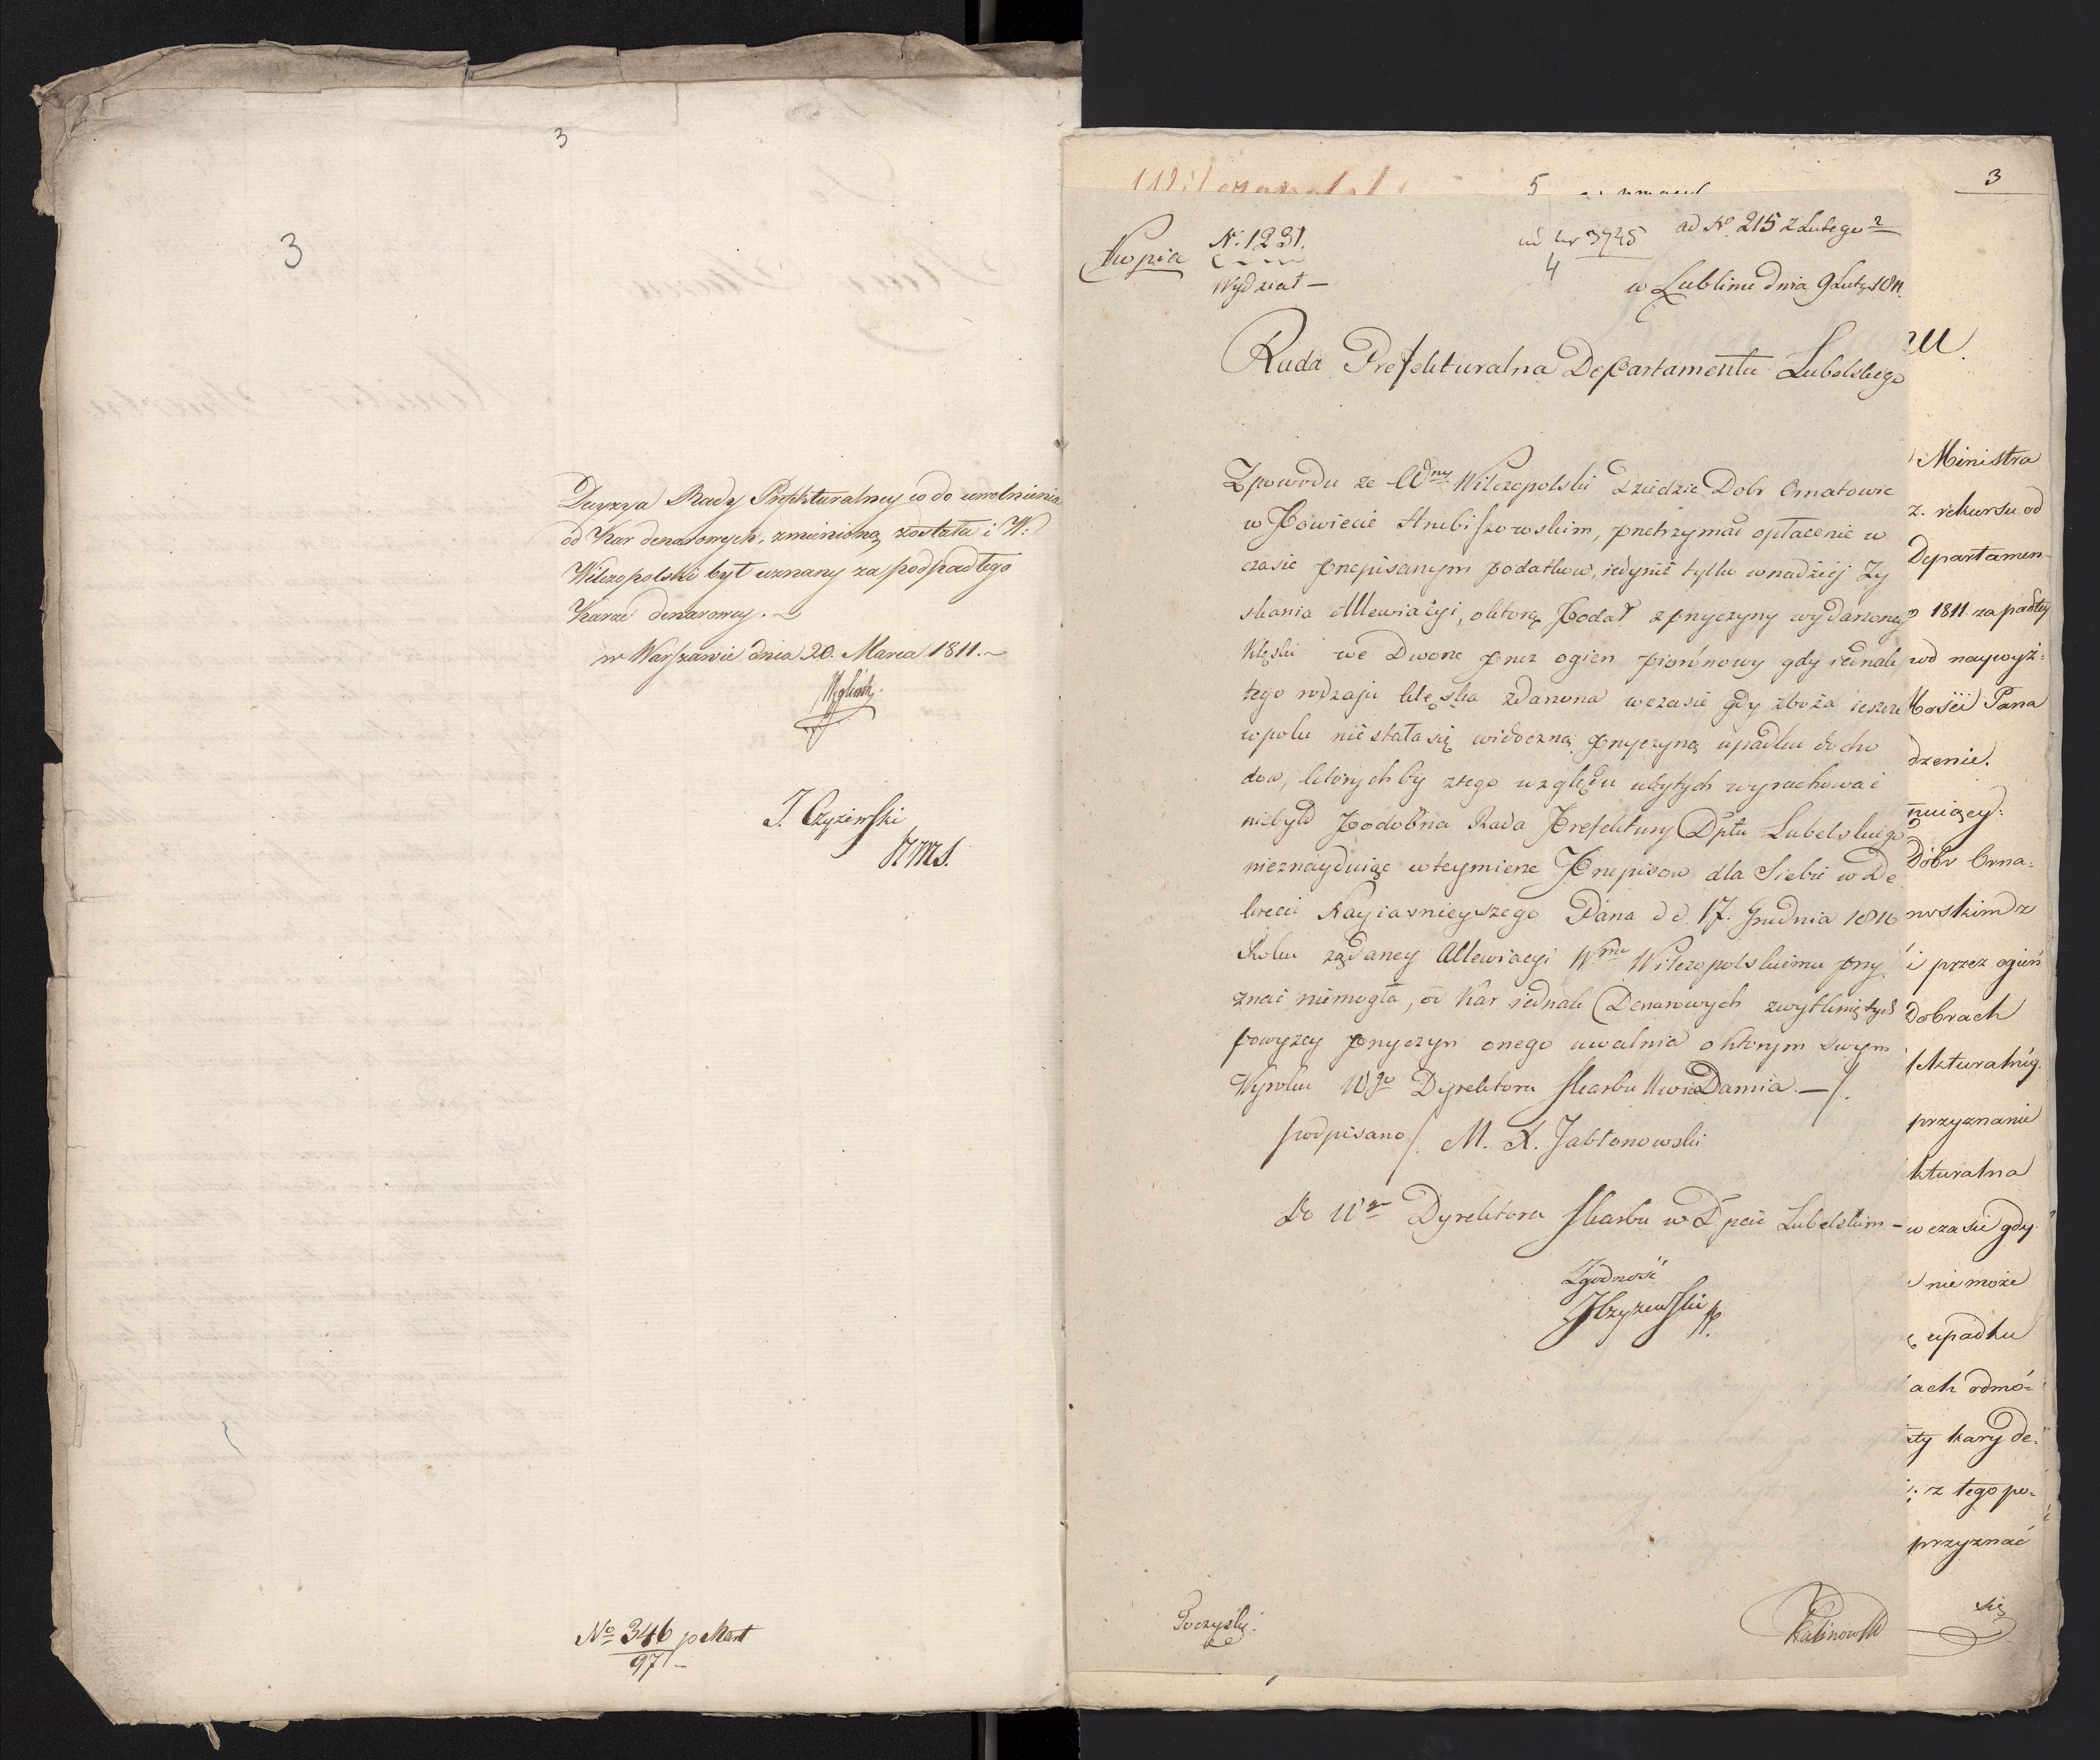 3
3
Decyzya Rady Prefekturalney co do uwolnienia
od Kar denarowych, zmienioną została i W:
Wilczopolski był uznany za podpadłego
Karze denarowey. ~
w Warszawie dnia 20. Marca 1811. ~
J. Czyżewski
No 346 p Mart
97
3
5
Kopia
N: 1231.
Wydział —
ad Nr 3745
4
ad No 215 z Lutego
w Lublinie dnia 9 Lutgo 1811.
Rada Prefekturalna Departamentu Lubelskiego
Z powodu ze Wny Wilczopolski Dziedzic Dobr Ornatowic
w Powiecie Hrubiszowskim, przetrzymał opłacenie w
czasie przepisanym podatkow, iedynie tylko w nadzieij Zy
skania Allewiacyi, o ktorą Podał z przyczyny wydarzoney
Klęski we Dworze przez ogien piorónowy gdy iednak
tego rodzaju klęska zdarzona w czasie gdy zboża ieszcze
w polu nie stała się widoczną przyczyną upadku docho
dow, ktorych by z tego względu ubytych wyrachować
niebyło Podobna Rada Prefektury Dptu Lubelskiego
nieznayduiąc w teymierze Przepisow dla Siebie w De
krecie Nayiasnieyszego Pana d d. 17. Grudnia 1810
Roku żądaney Allewiacyi Wmu Wilczopolskiemu przy
znać niemogła, od Kar iednak Denarowych z wytkniętych
powyzey przyczyn onego uwalnia o ktorym swym
Wyroku Wgo Dyrektora Skarbu Uwiadamia. — /.
podpisano /. M. X. Jabłonowski
Do Wgo Dyrektora Skarbu w Dpcie Lubelskim —
Zgodność
JCzyzewski
Kalinowski
Ministra
z. rekursu od
Departamen-
1811 zapadłey
od naywyż=
Mości Pana
dzenie.
Dóbr Orna=
owskim z
i przez ogień
Dobrach
fekturalney.
przyznanie
kturalna
w czasie gdy
nie może
upadku
ach odmó=
aty kary de=
z tego po=
przyznać
się